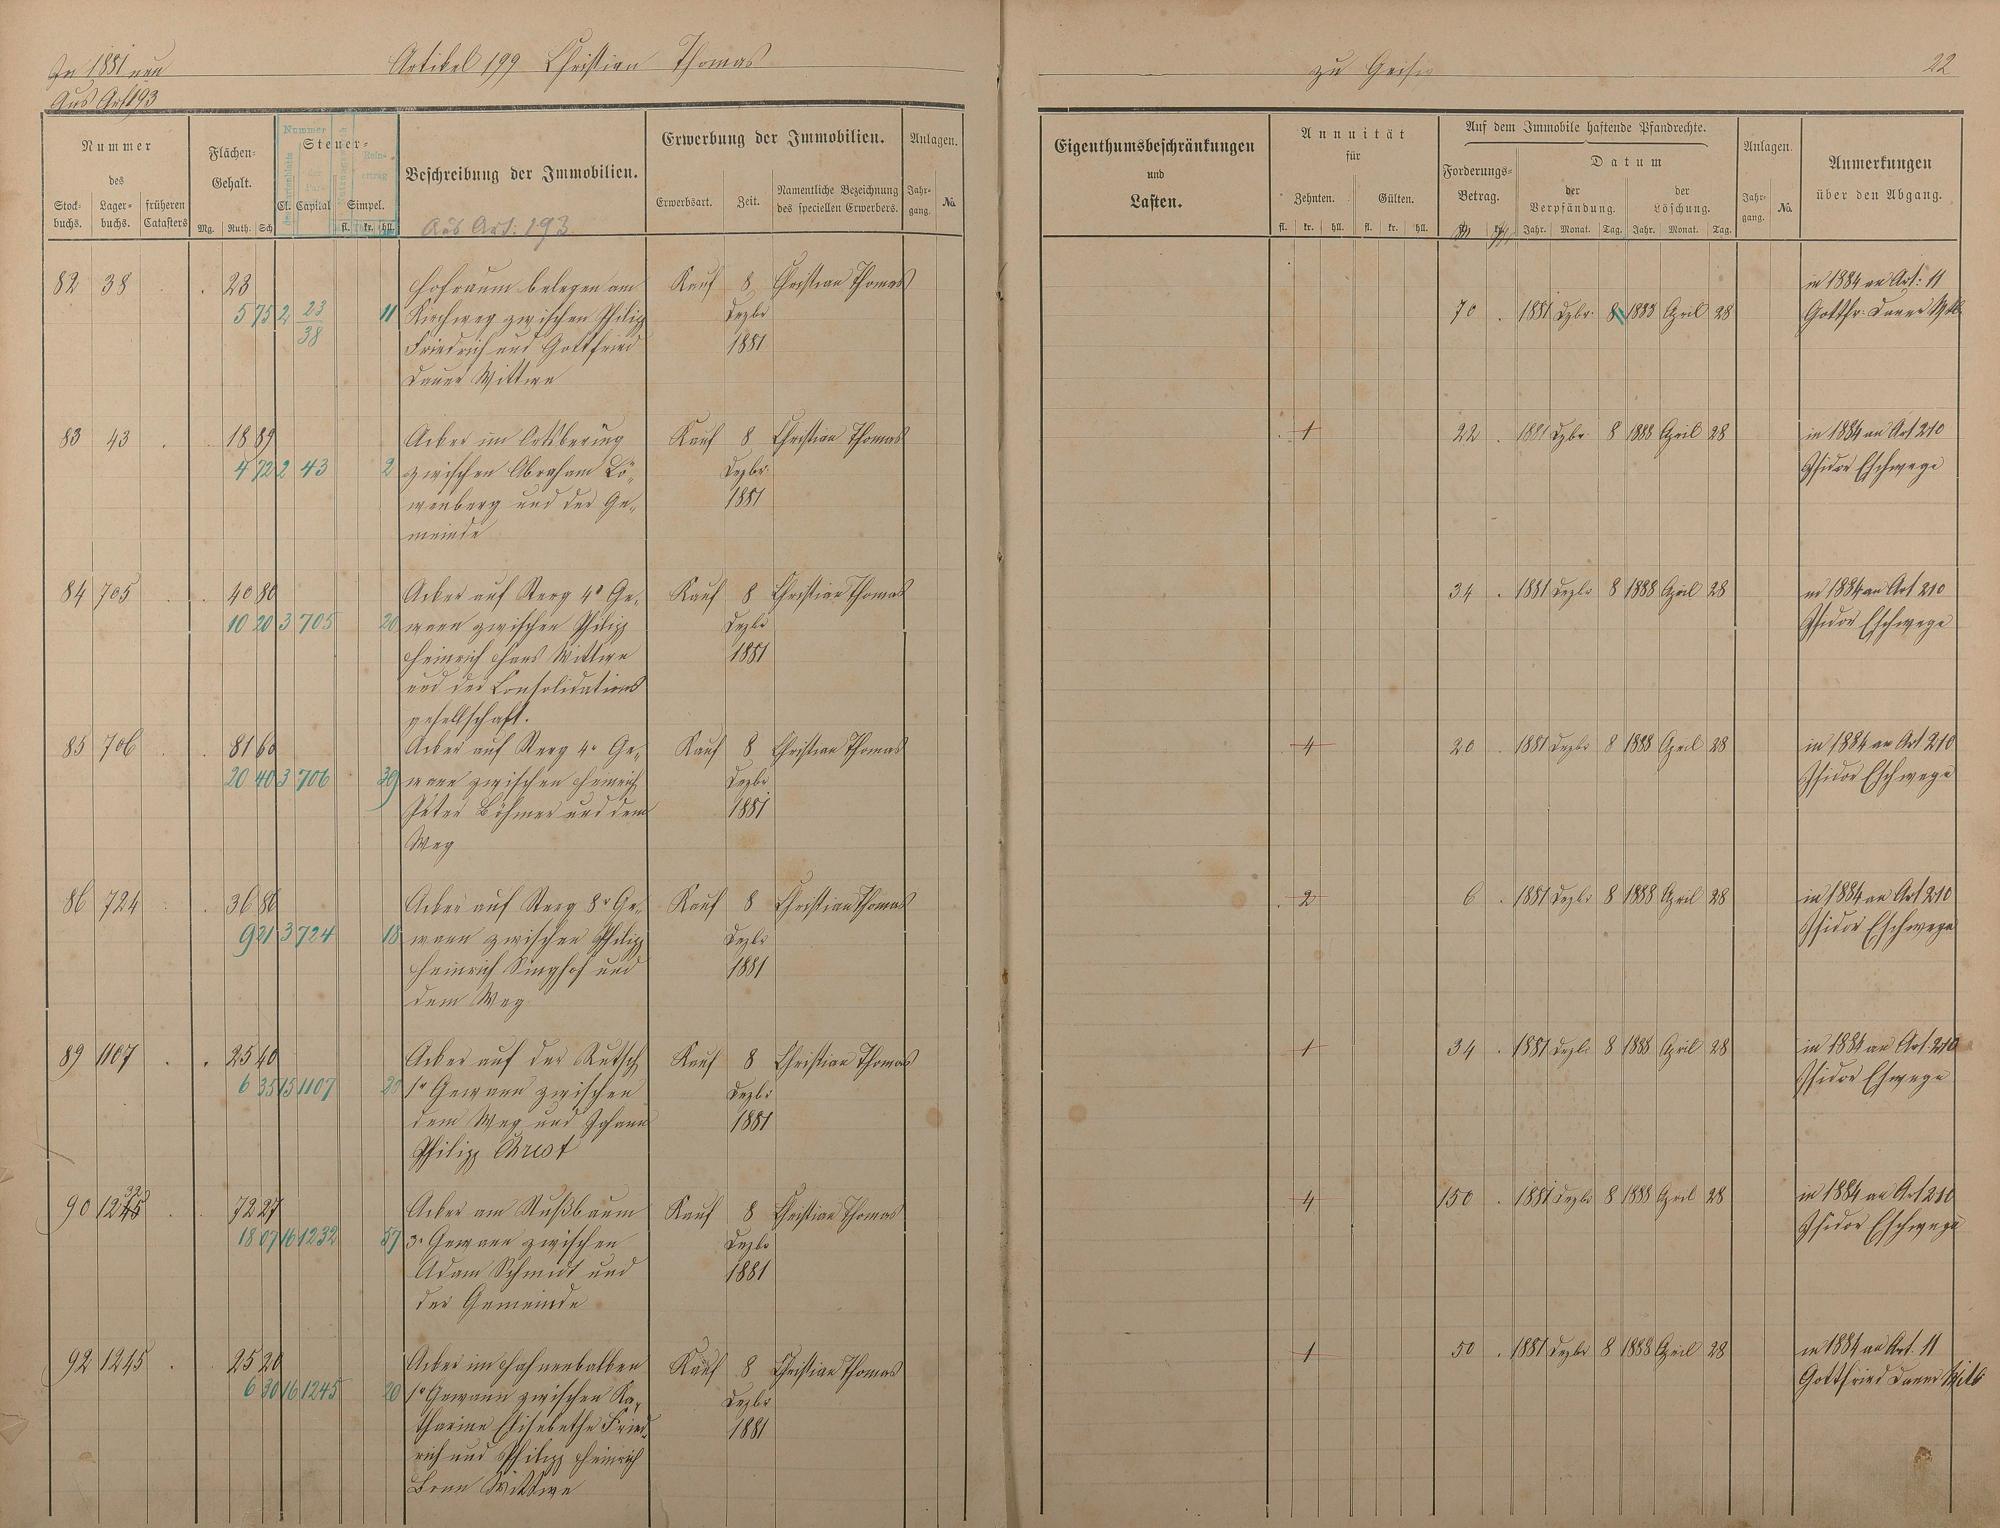 In 1881 neu
Aus Art 193
Artikel 199 Christian Thomas
zu Geisig
22
Nummer
des
Stock-buchs.
Lager-buchs.
früheren Catasters
Flächen-Gehalt.
Mg. Ruth. Sch
Steuer-
Cl. Capital Simpel.
fl. kr. hll.
Beschreibung der Immobilien.
Aus Art: 193
Erwerbung der Immobilien.
Erwerbsart. Zeit. Namentliche Bezeichnung des speciellen Erwerbers.
Anlagen.
Jahr-gang. No.
Eigenthumsbeschränkungen
und
Lasten.
Annuität
für
Zehnten. Gülten.
fl. kr. hll. fl. kr. hll.
Auf dem Immobile haftende Pfandrechte.
Forderungs-Betrag.
Datum
der Verpfändung. der Löschung.
Jahr. Monat. Tag. Jahr. Monat. Tag.
Anlagen.
Jahr-gang. No.
Anmerkungen
über den Abgang.
82 38 23 Hofraum belegen am Kauf 8 Christian Thomas in 1884 an Art: 11
5 75 2 23 11 Kirchweg zwischen Philipp Dezbr 70 1881 Dzbr. 8 1883 April 28 Gottfr. Dauer Wtb.
38 Friedrich und Gottfried 1881
Dauer Wittwe
83 43 18 89 Acker im Ortsbering Kauf 8 Christian Thomas 1 22 1881 Dzbr 8 1888 April 28 in 1884 an Art 210
4 72 2 43 2 zwischen Abraham Lö- Dezbr Isidor Eschwege
wenberg und der Ge- 1881
meinde
84 705 40 80 Acker auf Sterg 4r Ge- Kauf 8 Christian Thomas 34 1881 Dezbr 8 1888 April 28 in 1884 an Art 210
10 20 3 705 20 wann zwischen Philipp Dezbr Isidor Eschwege
Heinrich Haus Wittwe 1881
und der Consolidations
gesellschaft.
85 706 81 60 Acker auf Sterg 4r Ge- Kauf 8 Christian Thomas 4 20 1881 Dezbr 8 1888 April 28 in 1884 an Art 210
20 40 3 706 39 wann zwischen Heinrich Dezbr Isidor Eschwege
Peter Böhmer und dem 1881
Weg
86 724 36 86 Acker auf Sterg 8r Ge- Kauf 8 Christian Thomas 2 6 1881 Dezbr 8 1888 April 28 in 1884 an Art 210
9 21 3 724 18 wann zwischen Philipp Dezbr Isidor Eschwege
Heinrich Singhof und 1881
dem Weg
89 1107 25 40 Acker auf der Rutsch Kauf 8 Christian Thomas 1 34 1881 Dezbr 8 1888 April 28 in 1884 an Art. 210
6 35 15 1107 20 1r Gewann zwischen Dezbr Isidor Eschwege
dem Weg und Johann 1881
Philipp Christ
32
90 1245 72 27 Acker am Nußbaum Kauf 8 Christian Thomas 4 150 1881 Dezbr 8 1888 April 28 in 1884 an Art 210
18 07 16 1232 57 3r Gewann zwischen Dezbr Isidor Eschwege
Adam Schmidt und 1881
der Gemeinde
92 1245 25 20 Acker im Hahnenbalken Kauf 8 Christian Thomas 1 50 1881 Dezbr 8 1888 April 28 in 1884 an Art. 11
6 30 16 1245 20 1r Gewann zwischen Ka- Dezbr Gottfried Dauer Wittb
tharine Elisabethe Fried- 1881
rich und Philipp Heinrich
Wittwe